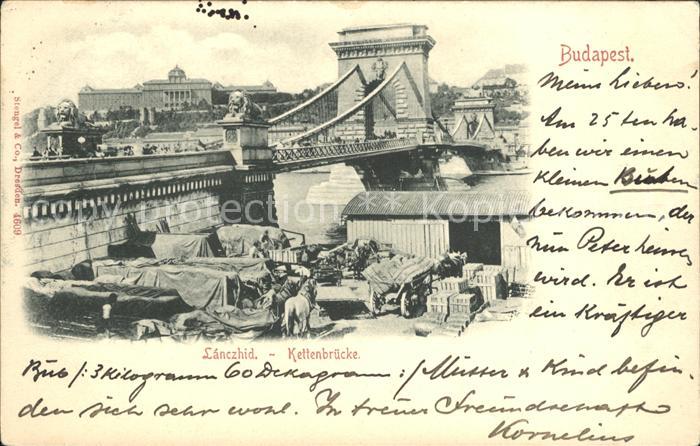 Budapest.
Meine Lieben!
Am 25ten ha-
ben wir einen
kleinen Buben
bekommen, der
nun Peter heissen
wird. Er ist
ein kräftiger
Bub /: 3 Kilogramm 60 Dekagramm :/ Mutter & Kind befin-
den sich sehr wohl. In treuer Freundschaft
Kornelius
Lánczhid. - Kettenbrücke.
Stengel & Co., Dresden. 4609
Copyright protection Kopierschutz